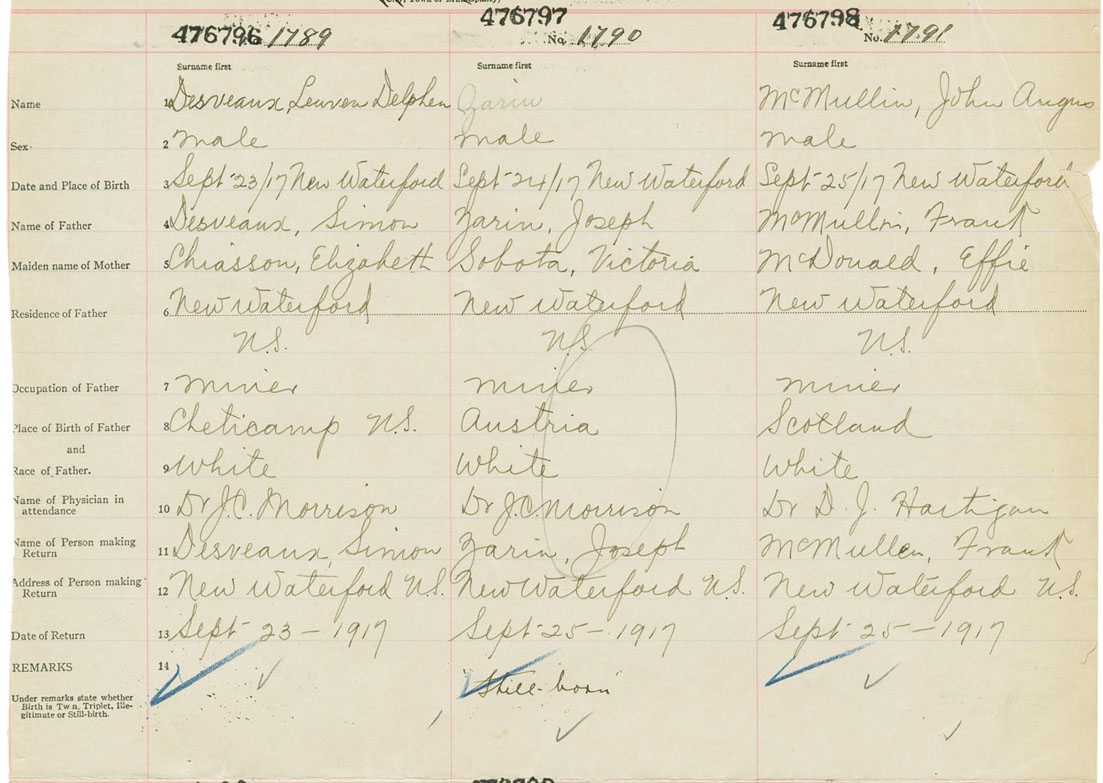 476796 1789 476797 No. 1790 476798 No. 1791
Surname first Surname first Surname first
Name 1 Desveaux, Leuven Delphen Zarin McMullin, John Angus
Sex 2 male male male
Date and Place of Birth 3 Sept 23/17 New Waterford Sept 24/17 New Waterford Sept 25/17 New Waterford
Name of Father 4 Desveaux, Simon Zarin, Joseph McMullin, Frank
Maiden name of Mother 5 Chiasson, Elizabeth Sobota, Victoria McDonald, Effie
Residence of Father 6 New Waterford New Waterford New Waterford
N.S. N.S. N.S.
Occupation of Father 7 miner miner miner
Place of Birth of Father 8 Cheticamp N.S. Austria Scotland
and
Race of Father. 9 White White White
Name of Physician in
attendance 10 Dr J.C. Morrison Dr J.C Morrison Dr D. J. Hartigan
Name of Person making
Return 11 Desveaux, Simon Zarin, Joseph McMullen, Frank
Address of Person making
Return 12 New Waterford N.S. New Waterford N.S. New Waterford N.S.
Date of Return 13 Sept 23 - 1917 Sept 25 - 1917 Sept 25 - 1917
REMARKS 14
Still-born
Under remarks state whether
Birth is Twin, Triplet, Ille-
gitimate or Still-birth.